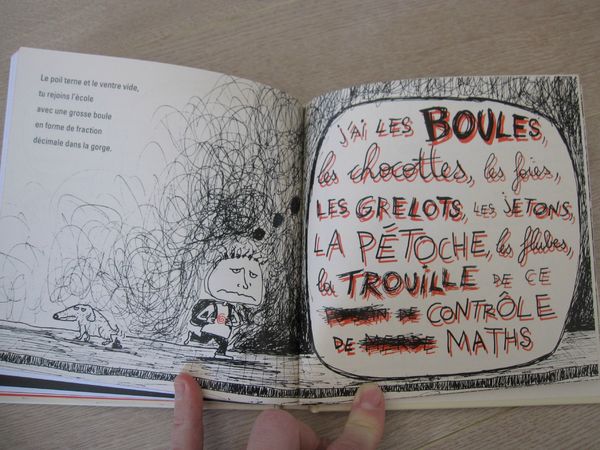 Le poil terne et le ventre vide,
tu rejoins l'école
avec une grosse boule
en forme de fraction
décimale dans la gorge.
J'AI LES BOULES,
les chocottes, les foies,
LES GRELOTS, LES JETONS,
LA PÉTOCHE, les flubes,
la TROUILLE DE CE
DE CONTRÔLE
DE MERDE MATHS